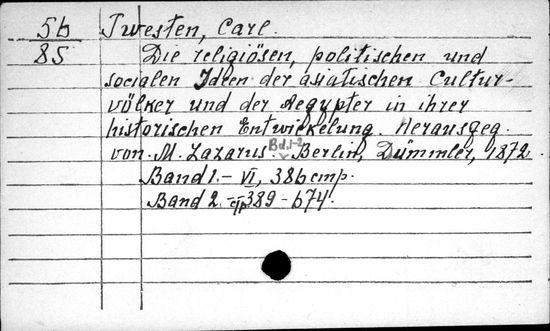 56 Twesten, Carl.
85 Die religiösen, politischen und
socialen Ideen der asiatischen Cultur-
völker und der Aegypter in ihrer
historischen Entwickelung. Herausgeg.
von M. Lazarus. Bd.1-2 Berlin, Dümmler, 1872.
Band 1. – VI, 386 стр.
Band 2. – стр. 389 – 674.